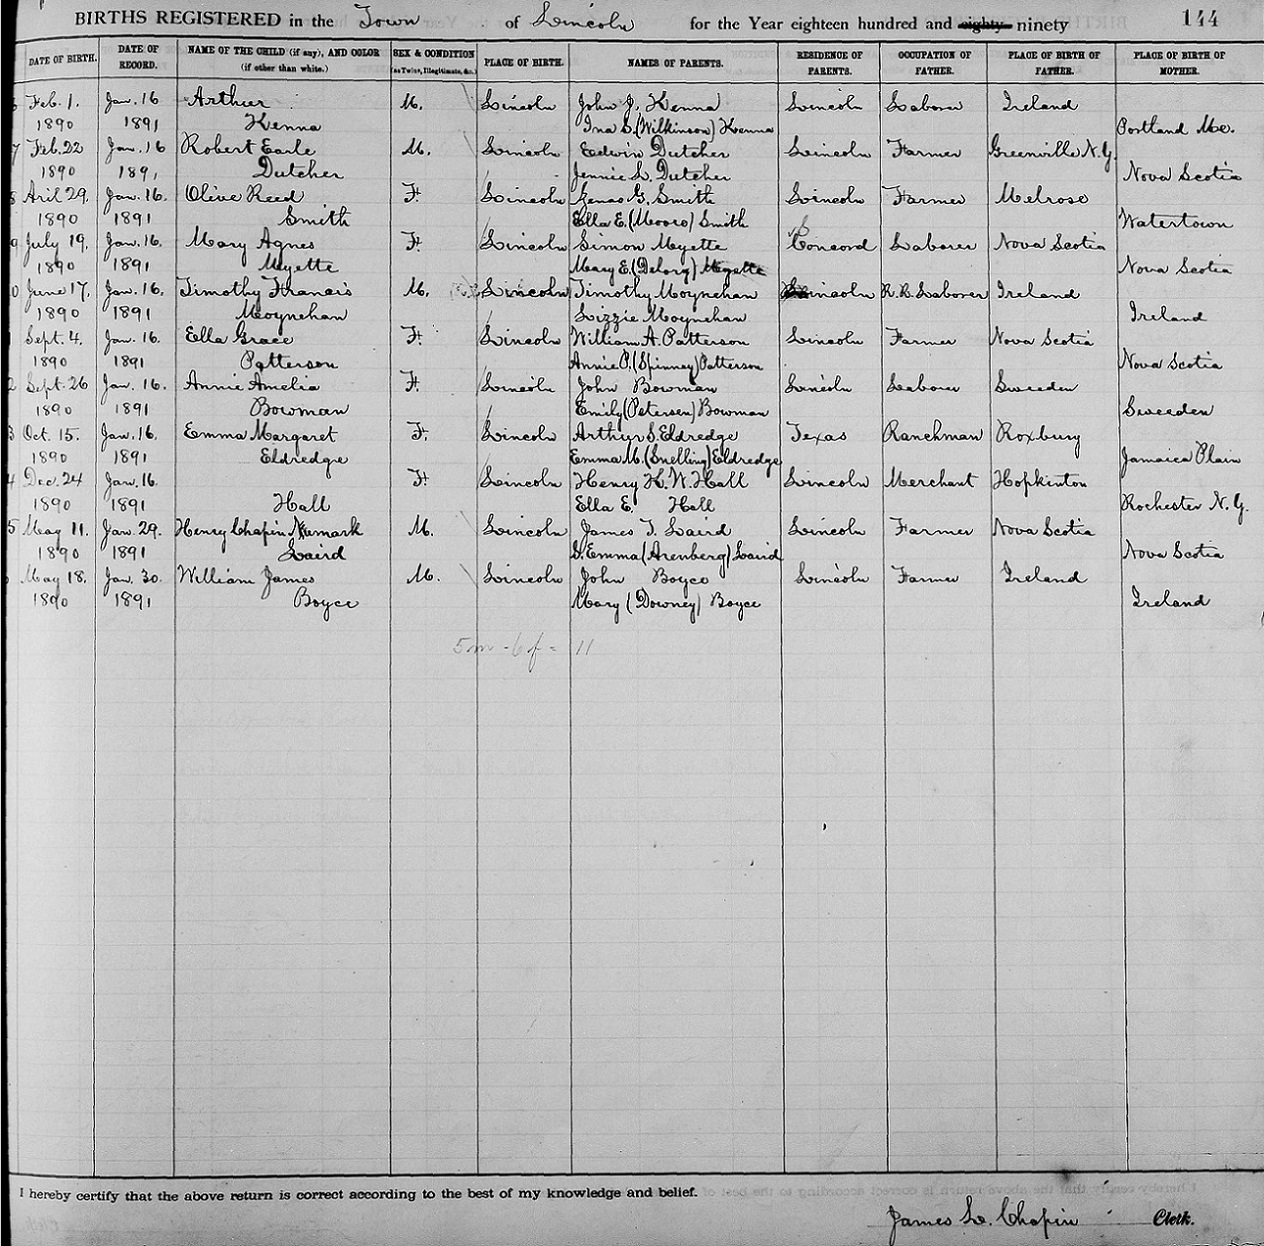 BIRTHS REGISTERED in the Town of Lincoln for the Year eighteen hundred and eighty ninety 144
DATE OF BIRTH. DATE OF RECORD. NAME OF THE CHILD (if any), AND COLOR (if other than white.) SEX & CONDITION (as Twins, Illegitimate, &c.) PLACE OF BIRTH. NAMES OF PARENTS. RESIDENCE OF PARENTS. OCCUPATION OF FATHER. PLACE OF BIRTH OF FATHER. PLACE OF BIRTH OF MOTHER.
6 Feb. 1. Jan. 16 Arthur M. Lincoln John J. Kenna Lincoln Laborer Ireland
1890 1891 Kenna Ina S. (Wilkinson) Kenna Portland Me.
7 Feb. 22 Jan. 16 Robert Earle M. Lincoln Edwin Dutcher Lincoln Farmer Greenville N.Y.
1890 1891 Dutcher Jennie L. Dutcher Nova Scotia
8 Aril 29. Jan. 16. Olive Reed F. Lincoln Genas G. Smith Lincoln Farmer Melrose
1890 1891 Smith Ella E. (Moore) Smith Watertown
9 July 19. Jan. 16. Mary Agnes F. Lincoln Simon Myette Concord Laborer Nova Scotia
1890 1891 Myette Mary E. (Delory) Myette Nova Scotia
0 June 17. Jan. 16. Timothy Francis M. Lincoln Timothy Moynehan Lincoln R.R. Laborer Ireland
1890 1891 Moynehan Lizzie Moynehan Ireland
1 Sept. 4. Jan. 16. Ella Grace F. Lincoln William A. Patterson Lincoln Farmer Nova Scotia
1890 1891 Patterson Annie P. (Spinney) Patterson Nova Scotia
2 Sept. 26 Jan. 16. Annie Amelia F. Lincoln John Bowman Lincoln Laborer Sweeden
1890 1891 Bowman Emily (Petersen) Bowman Sweeden
3 Oct. 15. Jan. 16. Emma Margaret F. Lincoln Arthur S. Eldredge Texas Ranchman Roxbury
1890 1891 Eldredge Emma M. (Snelling) Eldredge Jamaica Plain
4 Dec. 24 Jan. 16. F. Lincoln Henry K. W. Hall Lincoln Merchant Hopkinton
1890 1891 Hall Ella E. Hall Rochester N.Y.
5 May 11. Jan. 29. Henry Chapin Numark M. Lincoln James T. Laird Lincoln Farmer Nova Scotia
1890 1891 Laird D. Emma (Arenberg) Laird Nova Scotia
May 18. Jan. 30. William James M. Lincoln John Boyce Lincoln Farmer Ireland
1890 1891 Boyce Mary (Downey) Boyce Ireland
5 m - 6 f = 11
I hereby certify that the above return is correct according to the best of my knowledge and belief.
James L. Chapin Clerk.